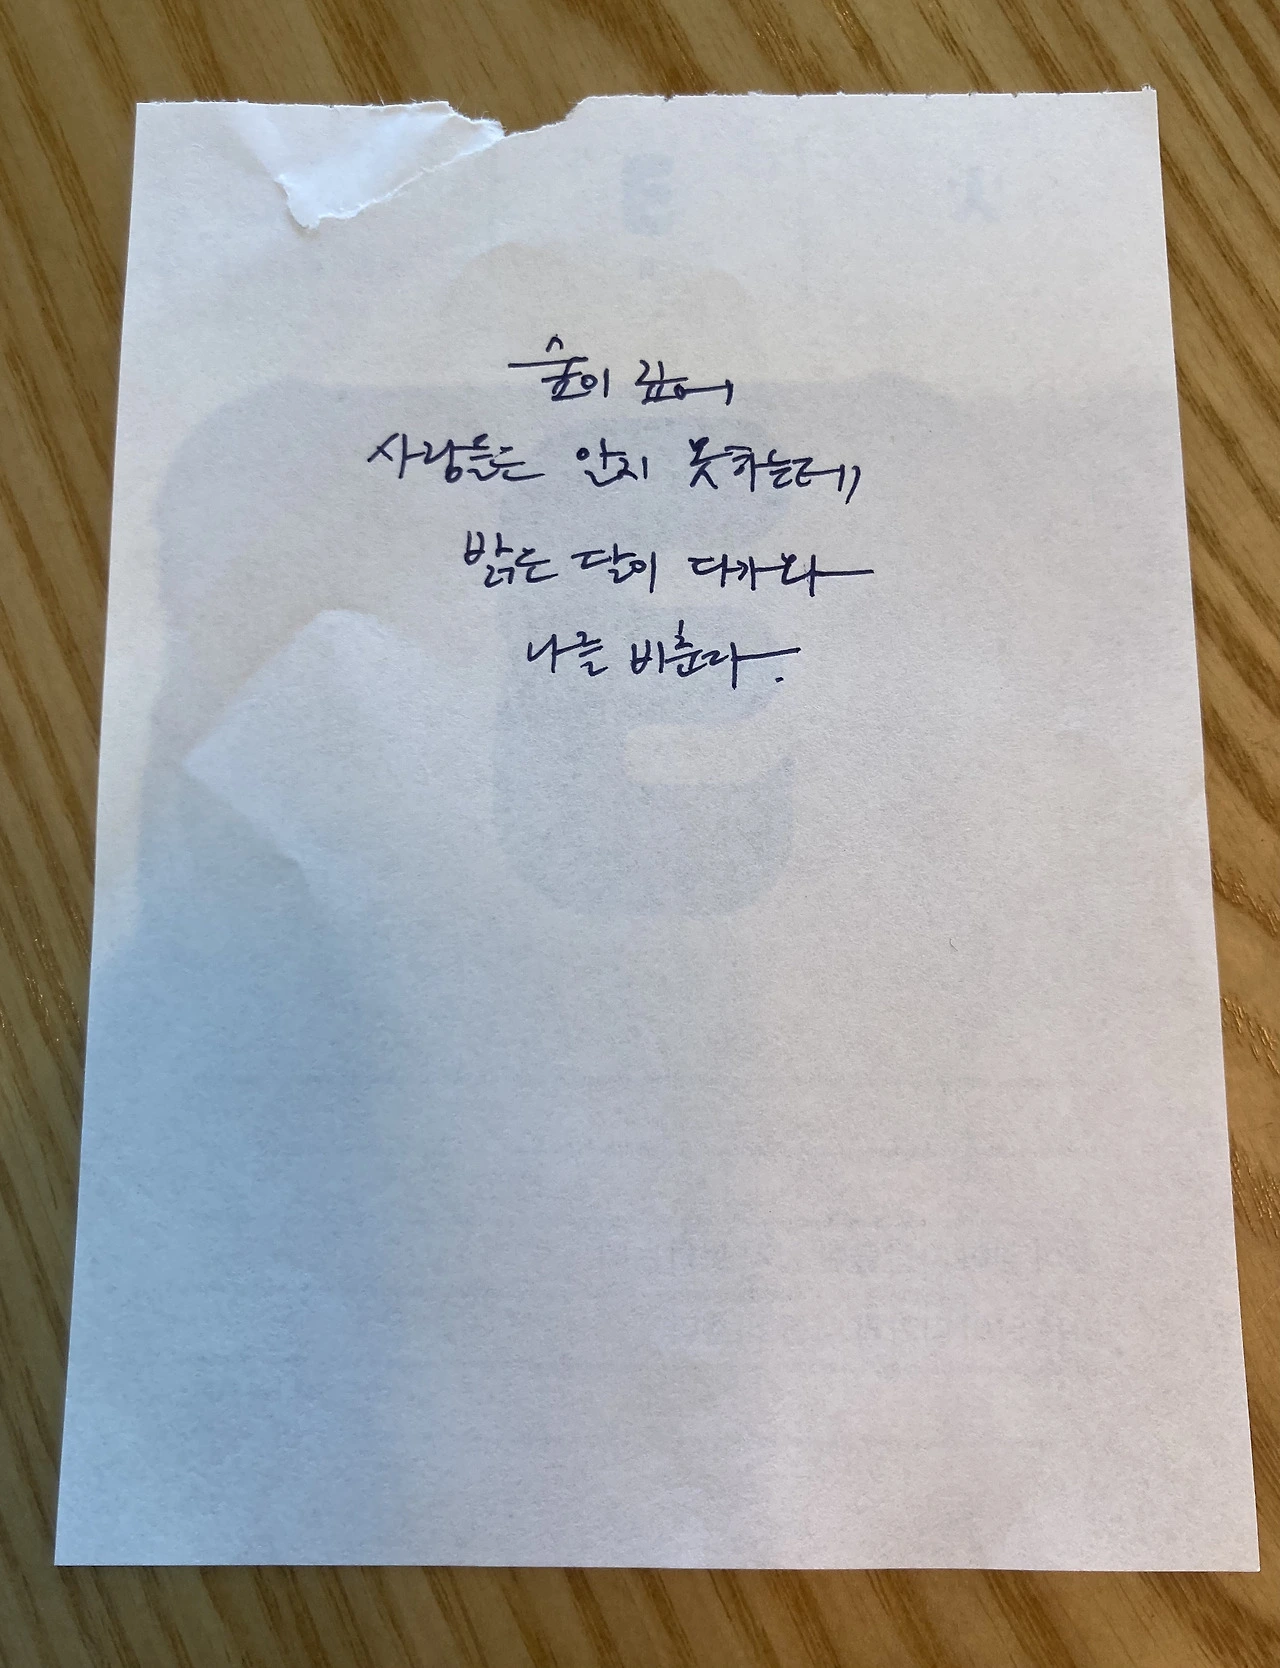 숲이 깊어
사람들은 알지 못하는데,
밝은 달이 다가와
나를 비춘다.